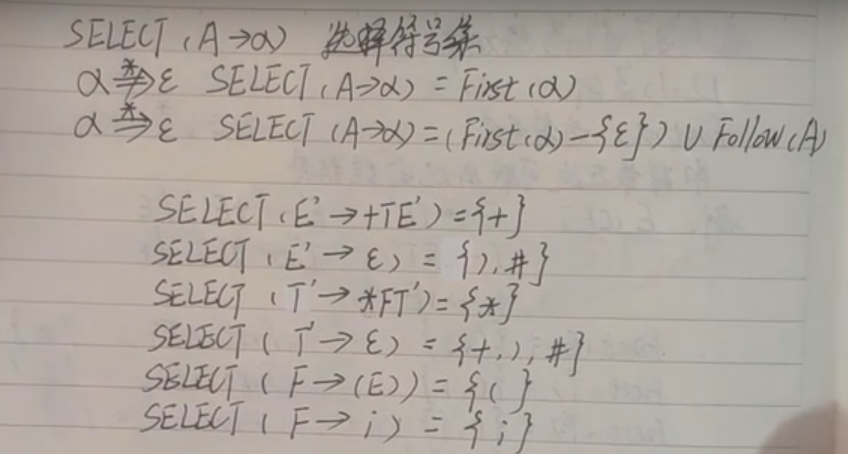 SELECT(A→α) 选择符号集
α *⇏ ε SELECT(A→α) = First(α)
α *⇒ ε SELECT(A→α) = (First(α) - {ε}) ∪ Follow(A)
SELECT(E'→+TE') = {+}
SELECT(E'→ε) = {),#}
SELECT(T'→*FT') = {*}
SELECT(T'→ε) = {+,),#}
SELECT(F→(E)) = {(}
SELECT(F→i) = {i}